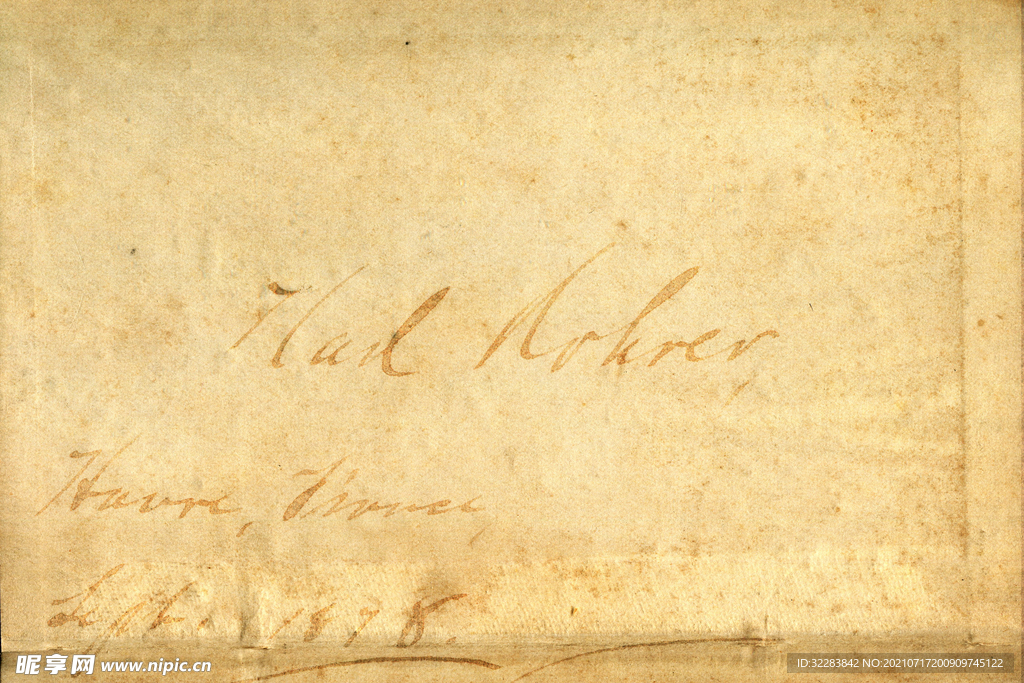 Karl Rohrer,
Havre, France,
Sept. 1878.
昵享网 www.nipic.cn
ID:32283842 NO:20210717200909745122